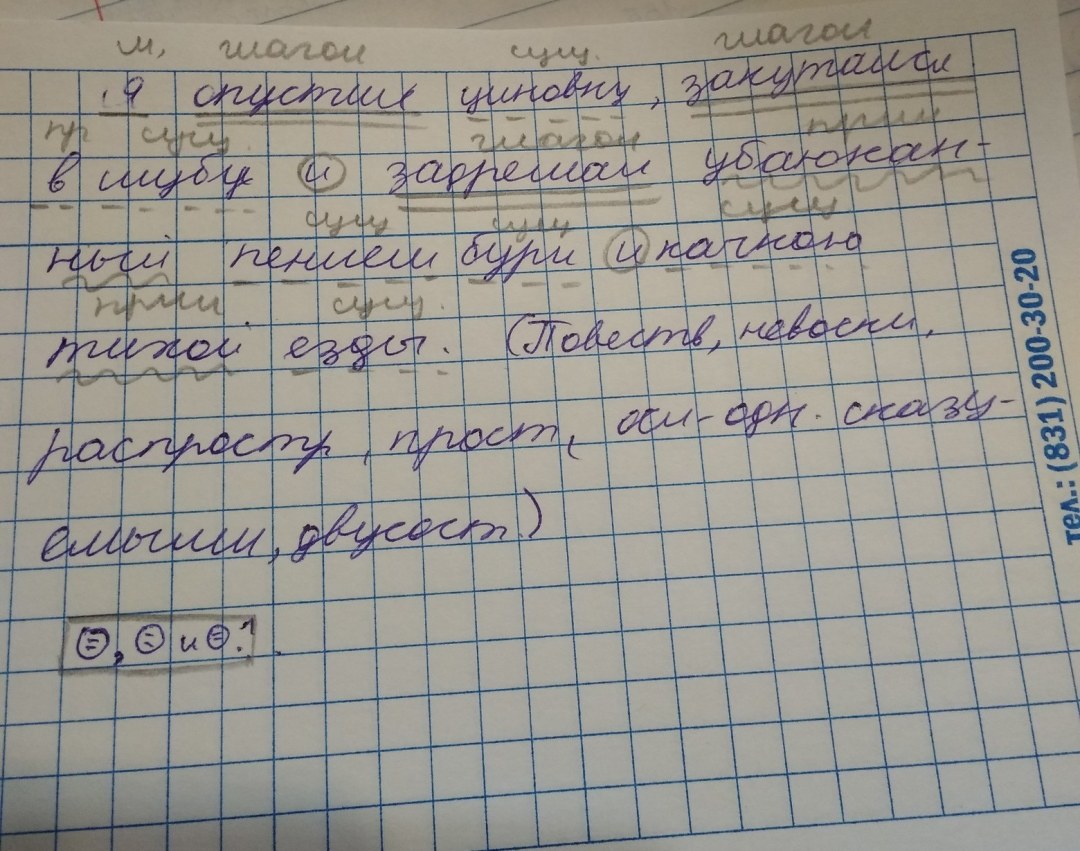 м, глагол сущ. глагол
Я опустил циновку, закутался
пр сущ. глагол прил
в шубу и задремал убаюкан-
сущ сущ сущ
ный пением бури и качкою
прил сущ.
тихой езды. (Повеств, невоскл,
распростр, прост, осл-одн. сказу-
емыми, двусост.)
тел.: (831) 200-30-20